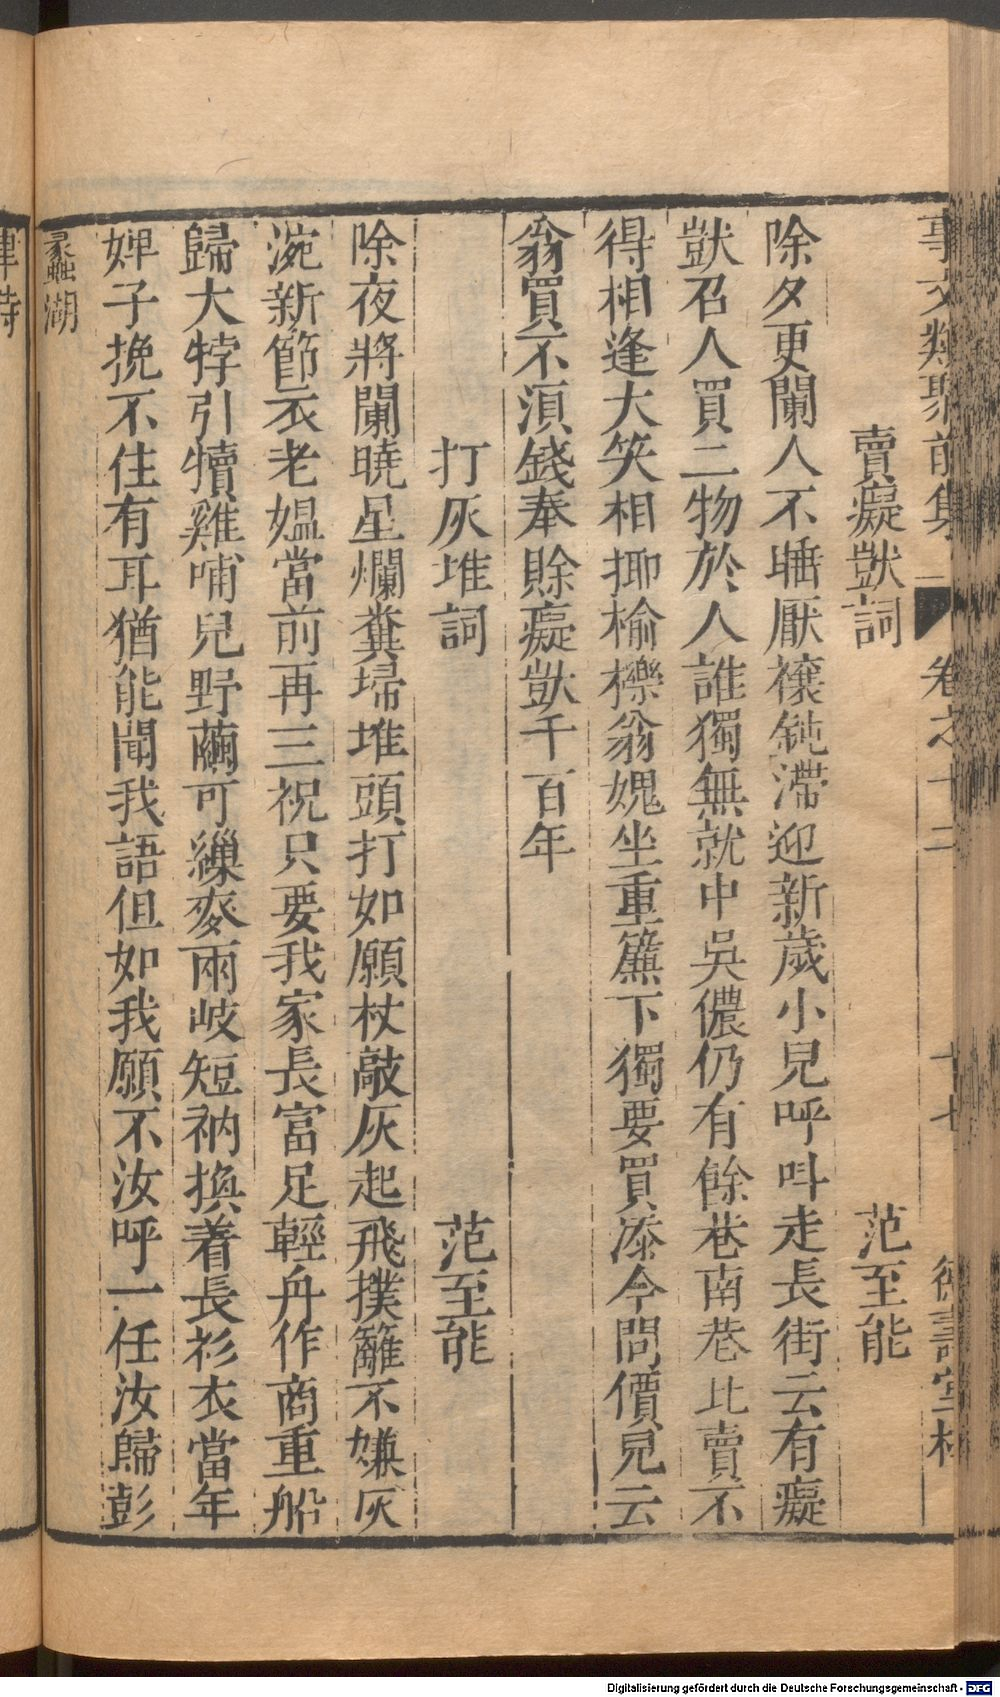 事文類聚前集 卷之十二 十七 德壽堂梓
賣癡獃詞 范至能
除夕更闌人不睡厭禳鈍滯迎新歲小兒呼呌走長街云有癡
獃召人買二物於人誰獨無就中吳儂仍有餘巷南巷北賣不
得相逢大笑相揶揄櫟翁媿坐重簾下獨要買添令問價兒云
翁買不湏錢奉賖癡獃千百年
打灰堆詞 范至能
除夜將闌曉星爛糞埽堆頭打如願杖敲灰起飛撲籬不嫌灰
涴新節衣老媼當前再三祝只要我家長富足輕舟作商重船
歸大牸引犢雞哺兒野繭可繅麥兩岐短衲換着長衫衣當年
婢子挽不住有耳猶能聞我語但如我願不汝呼一任汝歸彭
蠡湖
律詩
Digitalisierung gefördert durch die Deutsche Forschungsgemeinschaft - DFG